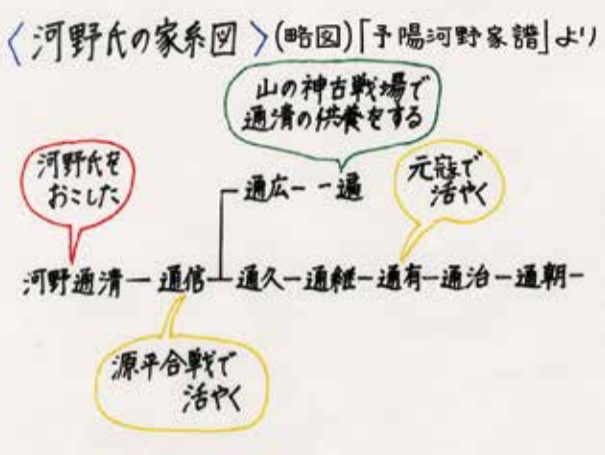 〈河野氏の家系図〉(略図)「予陽河野家譜」より
山の神古戦場で
通清の供養をする
河野氏を
おこした
元寇で
活やく
通広ー一遍
河野通清ー通信ー通久ー通継ー通有ー通治ー通朝ー
源平合戦で
活やく